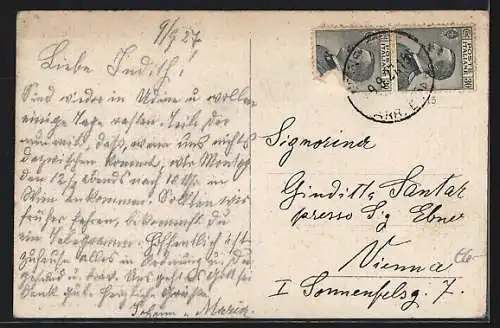 9/9 27
Liebe Judith!
Sind wieder in Udine u wollen
einige Tage rasten. Teile dir
nur mit, dass, wenn uns nichts
dazwischen kommt, wir Montag
den 12/9 abends nach 10 Uhr in
Wien ankommen. Sollten wir
früher fahren, bekommst du
ein Telegramm. Hoffentlich ist
zuhause alles in Ordnung u. du
gesund u. brav. Uns geht es Gott sei
Dank gut. Herzliche Grüsse
Johann u Maria
POSTE ITALIANE
POSTE ITALIANE
Signorina
Giuditta Santar
presso Sig Ebner
Vienna
I Sonnenfelsg. 7.